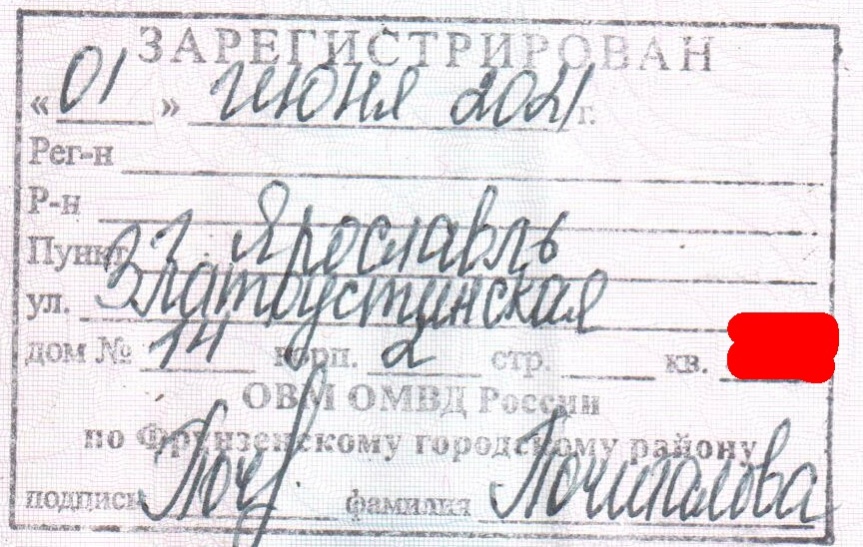 ЗАРЕГИСТРИРОВАН
« 01 » июня 2021 г.
Рег-н
Р-н
Пункт г. Ярославль
ул. Златоустинская
дом № 14 корп. 2 стр. кв.
ОВМ ОМВД России
по Фрунзенскому городскому району
подпись фамилия